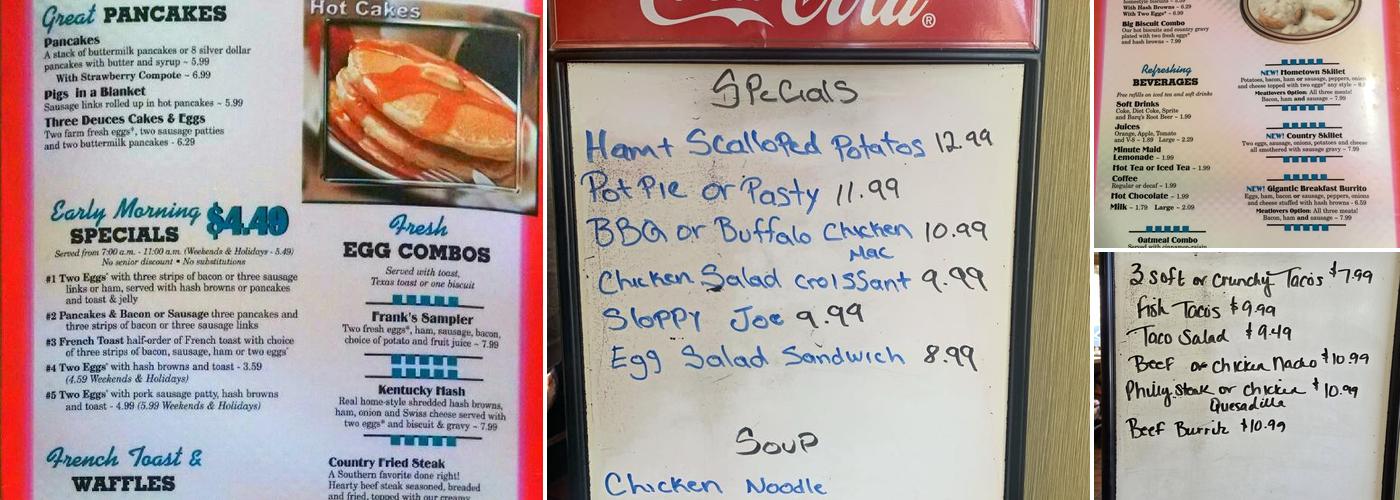 Great PANCAKES
Pancakes
A stack of buttermilk pancakes or 8 silver dollar
pancakes with butter and syrup ~ 5.99
With Strawberry Compote ~ 6.99
Pigs in a Blanket
Sausage links rolled up in hot pancakes ~ 5.99
Three Deuces Cakes & Eggs
Two farm fresh eggs*, two sausage patties
and two buttermilk pancakes - 6.29
Hot Cakes
Early Morning $4.49
SPECIALS
Served from 7:00 a.m. - 11:00 a.m. (Weekends & Holidays - 5.49)
No senior discount • No substitutions
#1 Two Eggs* with three strips of bacon or three sausage
links or ham, served with hash browns or pancakes
and toast & jelly
#2 Pancakes & Bacon or Sausage three pancakes and
three strips of bacon or three sausage links
#3 French Toast half-order of French toast with choice
of three strips of bacon, sausage, ham or two eggs*
#4 Two Eggs* with hash browns and toast - 3.59
(4.59 Weekends & Holidays)
#5 Two Eggs* with pork sausage patty, hash browns
and toast - 4.99 (5.99 Weekends & Holidays)
French Toast &
WAFFLES
Fresh
EGG COMBOS
Served with toast,
Texas toast or one biscuit
Frank's Sampler
Two fresh eggs*, ham, sausage, bacon,
choice of potato and fruit juice ~ 7.99
Kentucky Hash
Real home-style shredded hash browns,
ham, onion and Swiss cheese served with
two eggs* and biscuit & gravy ~ 7.99
Country Fried Steak
A Southern favorite done right!
Hearty beef steak seasoned, breaded
and fried, topped with our creamy
Coca-Cola®
Specials
Ham + Scalloped Potatos 12.99
Pot Pie or Pasty 11.99
BBQ or Buffalo Chicken 10.99
Mac
Chicken Salad croissant 9.99
Sloppy Joe 9.99
Egg Salad Sandwich 8.99
Soup
Chicken Noodle
With Hash Browns ~ 6.29
With Two Eggs* ~ 6.99
Big Biscuit Combo
Our hot biscuits and country gravy
plated with two fresh eggs*
and hash browns ~ 7.99
Refreshing
BEVERAGES
Free refills on iced tea and soft drinks
Soft Drinks
Coke, Diet Coke, Sprite
and Barq's Root Beer ~ 1.99
Juices
Orange, Apple, Tomato
and V-8 ~ 1.89 Large ~ 2.29
Minute Maid
Lemonade ~ 1.99
Hot Tea or Iced Tea ~ 1.99
Coffee
Regular or decaf ~ 1.99
Hot Chocolate ~ 1.99
Milk ~ 1.79 Large ~ 2.09
Oatmeal Combo
NEW! Hometown Skillet
Potatoes, bacon, ham or sausage, peppers, onions
and cheese topped with two eggs* any style ~
Meatlovers Option: All three meats!
Bacon, ham and sausage ~ 7.99
NEW! Country Skillet
Two eggs, sausage, onions, potatoes and cheese
all smothered with sausage gravy ~ 7.99
NEW! Gigantic Breakfast Burrito
Eggs, ham, bacon or sausage, peppers, onions
and cheese stuffed with hash browns ~ 6.59
Meatlovers Option: All three meats!
Bacon, ham and sausage ~ 7.99
3 Soft or Crunchy Tacos $7.99
Fish Tacos $9.99
Taco Salad $9.49
Beef or chicken Nacho $10.99
Philly Steak or chicken $10.99
Quesadilla
Beef Burrito $10.99